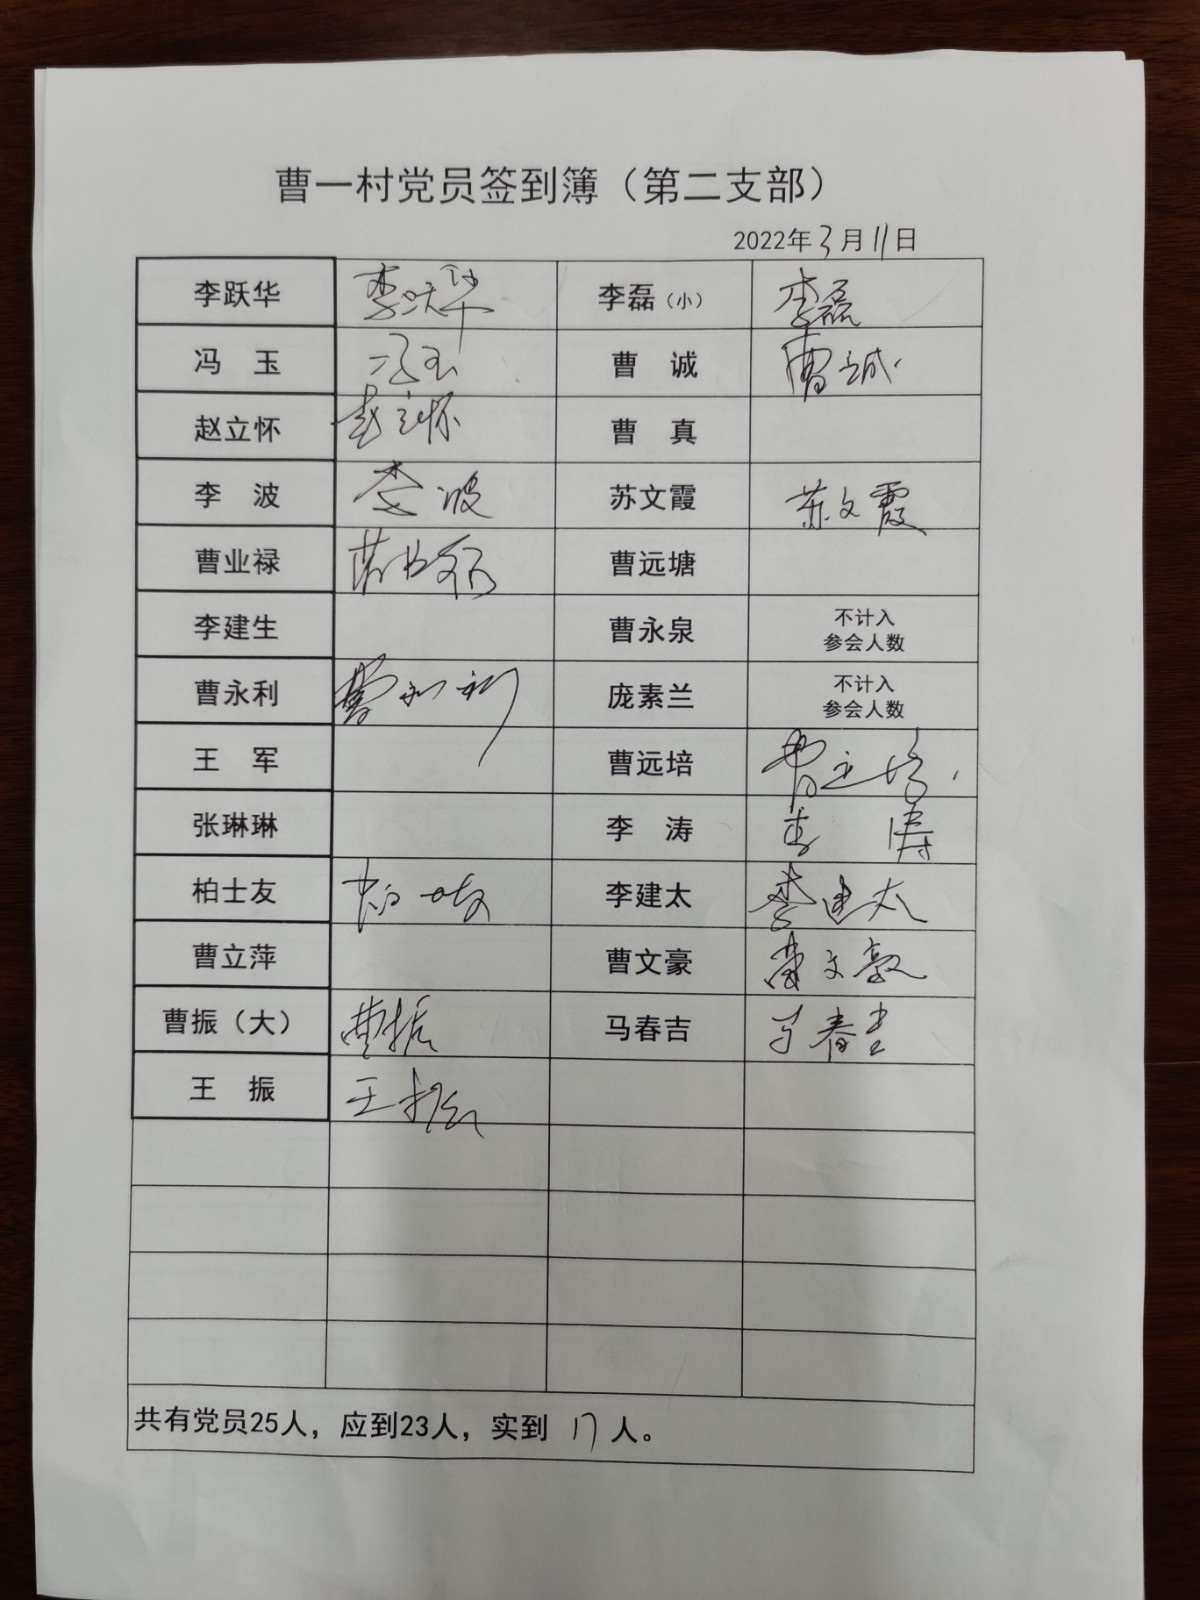 曹一村党员签到簿（第二支部）
2022年3月11日
李跃华 李跃华 李磊（小） 李磊
冯 玉 冯玉 曹 诚 曹诚
赵立怀 赵立怀 曹 真
李 波 李波 苏文霞 苏文霞
曹业禄 曹业禄 曹远塘
李建生 曹永泉 不计入
参会人数
曹永利 曹永利 庞素兰 不计入
参会人数
王 军 曹远培 曹远培
张琳琳 李 涛 李 涛
柏士友 柏士友 李建太 李建太
曹立萍 曹文豪 曹文豪
曹振（大） 曹振 马春吉 马春吉
王 振 王振
共有党员25人，应到23人，实到 17 人。